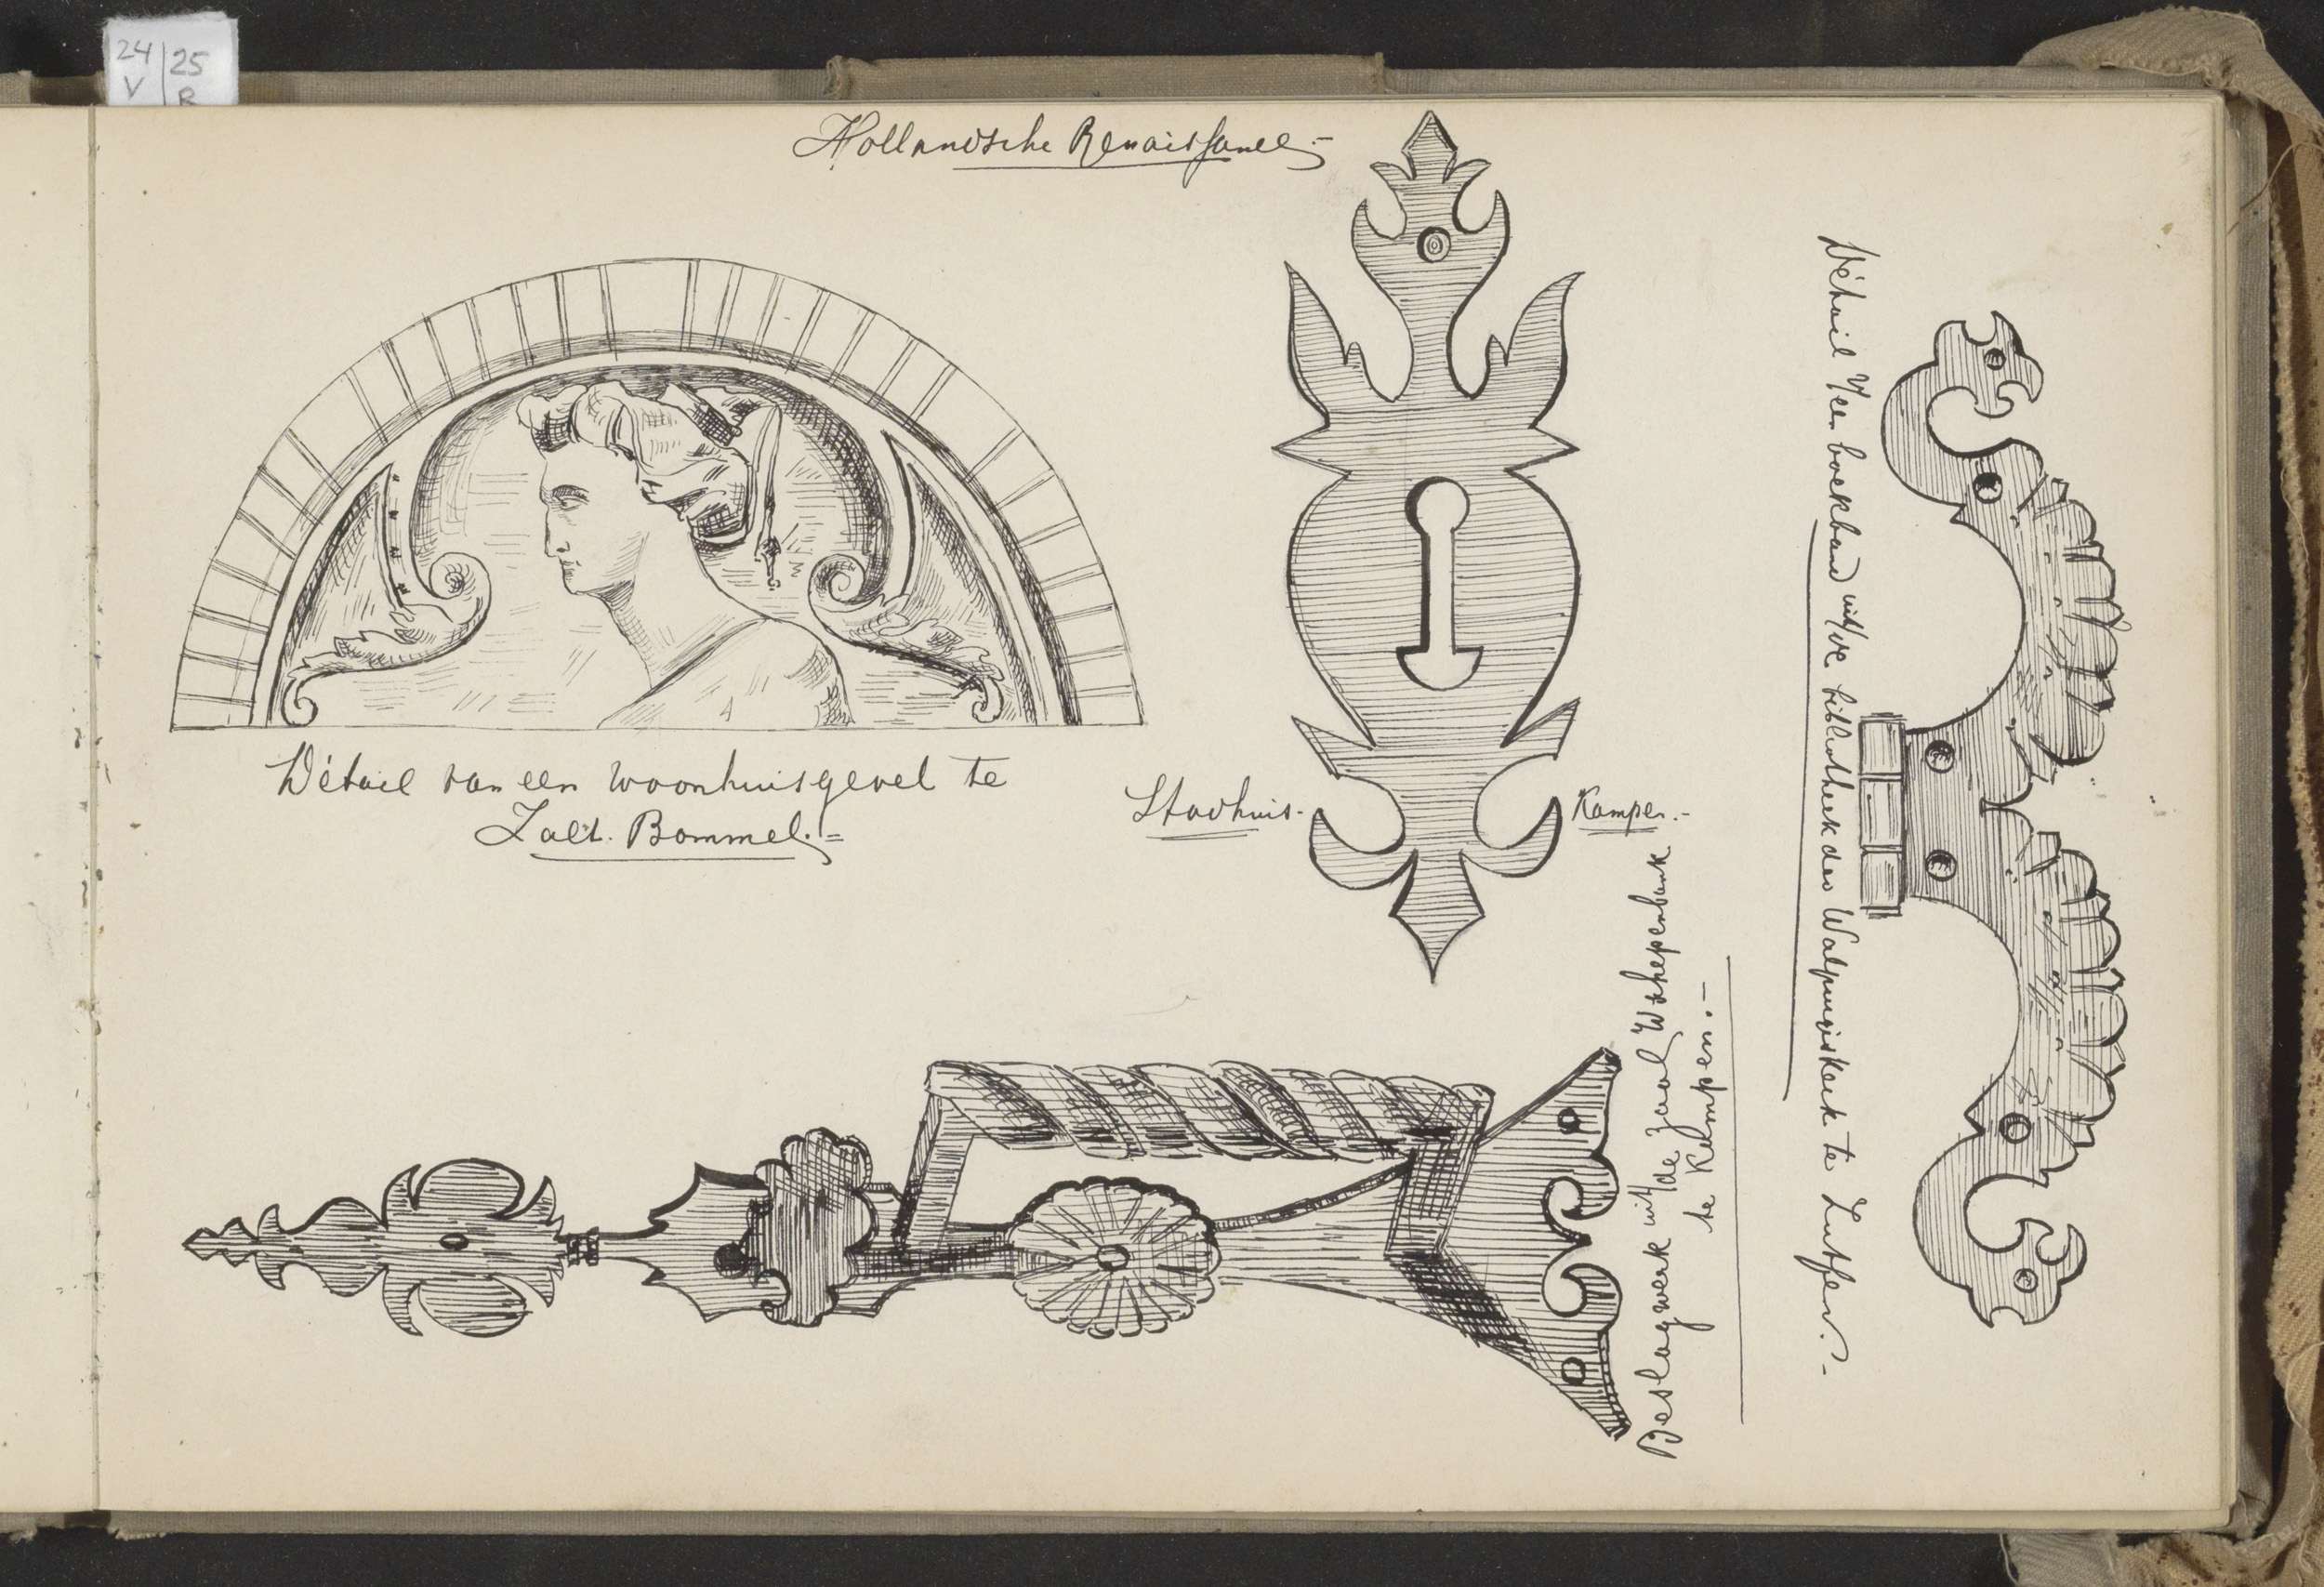 24 25
V R
Hollandsche Renaissance.-
Détail van een woonhuisgevel te
Zalt. Bommel.=
Stadhuis.-
Kampen.-
Beslagwerk uit/de zaal Schepenbank
te Kampen.-
Détail v/een boekband uit/de bibliotheek der Walpurgiskerk te Zutfen.-